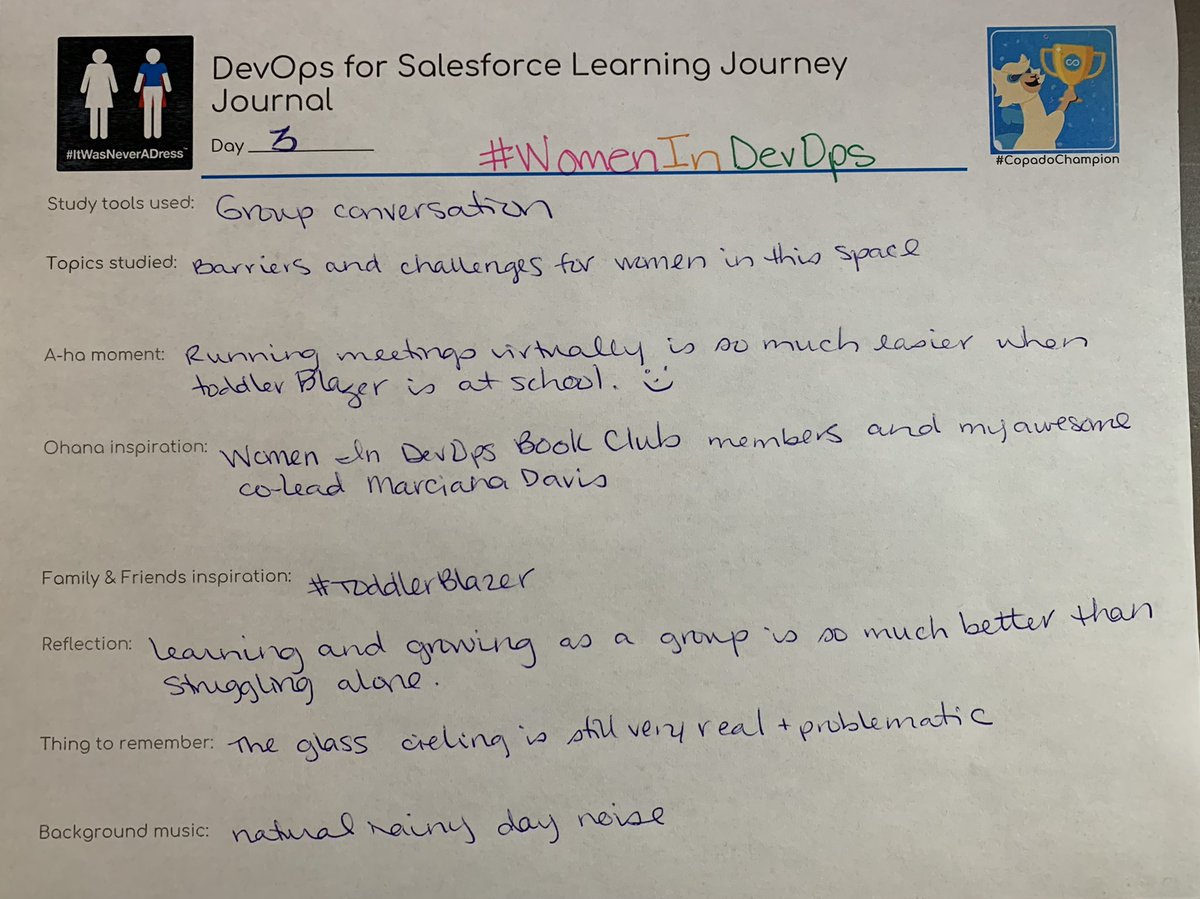 DevOps for Salesforce Learning Journey
Journal
Day 3
#WomenInDevOps
#ItWasNeverADress™
#CopadoChampion
Study tools used: Group conversation
Topics studied: Barriers and challenges for women in this space
A-ha moment: Running meetings virtually is so much easier when
toddler Blazer is at school. :)
Ohana inspiration: Women In DevOps Book Club members and my awesome
co-lead Marciana Davis
Family & Friends inspiration: #ToddlerBlazer
Reflection: Learning and growing as a group is so much better than
struggling alone.
Thing to remember: The glass cieling is still very real + problematic
Background music: natural rainy day noise